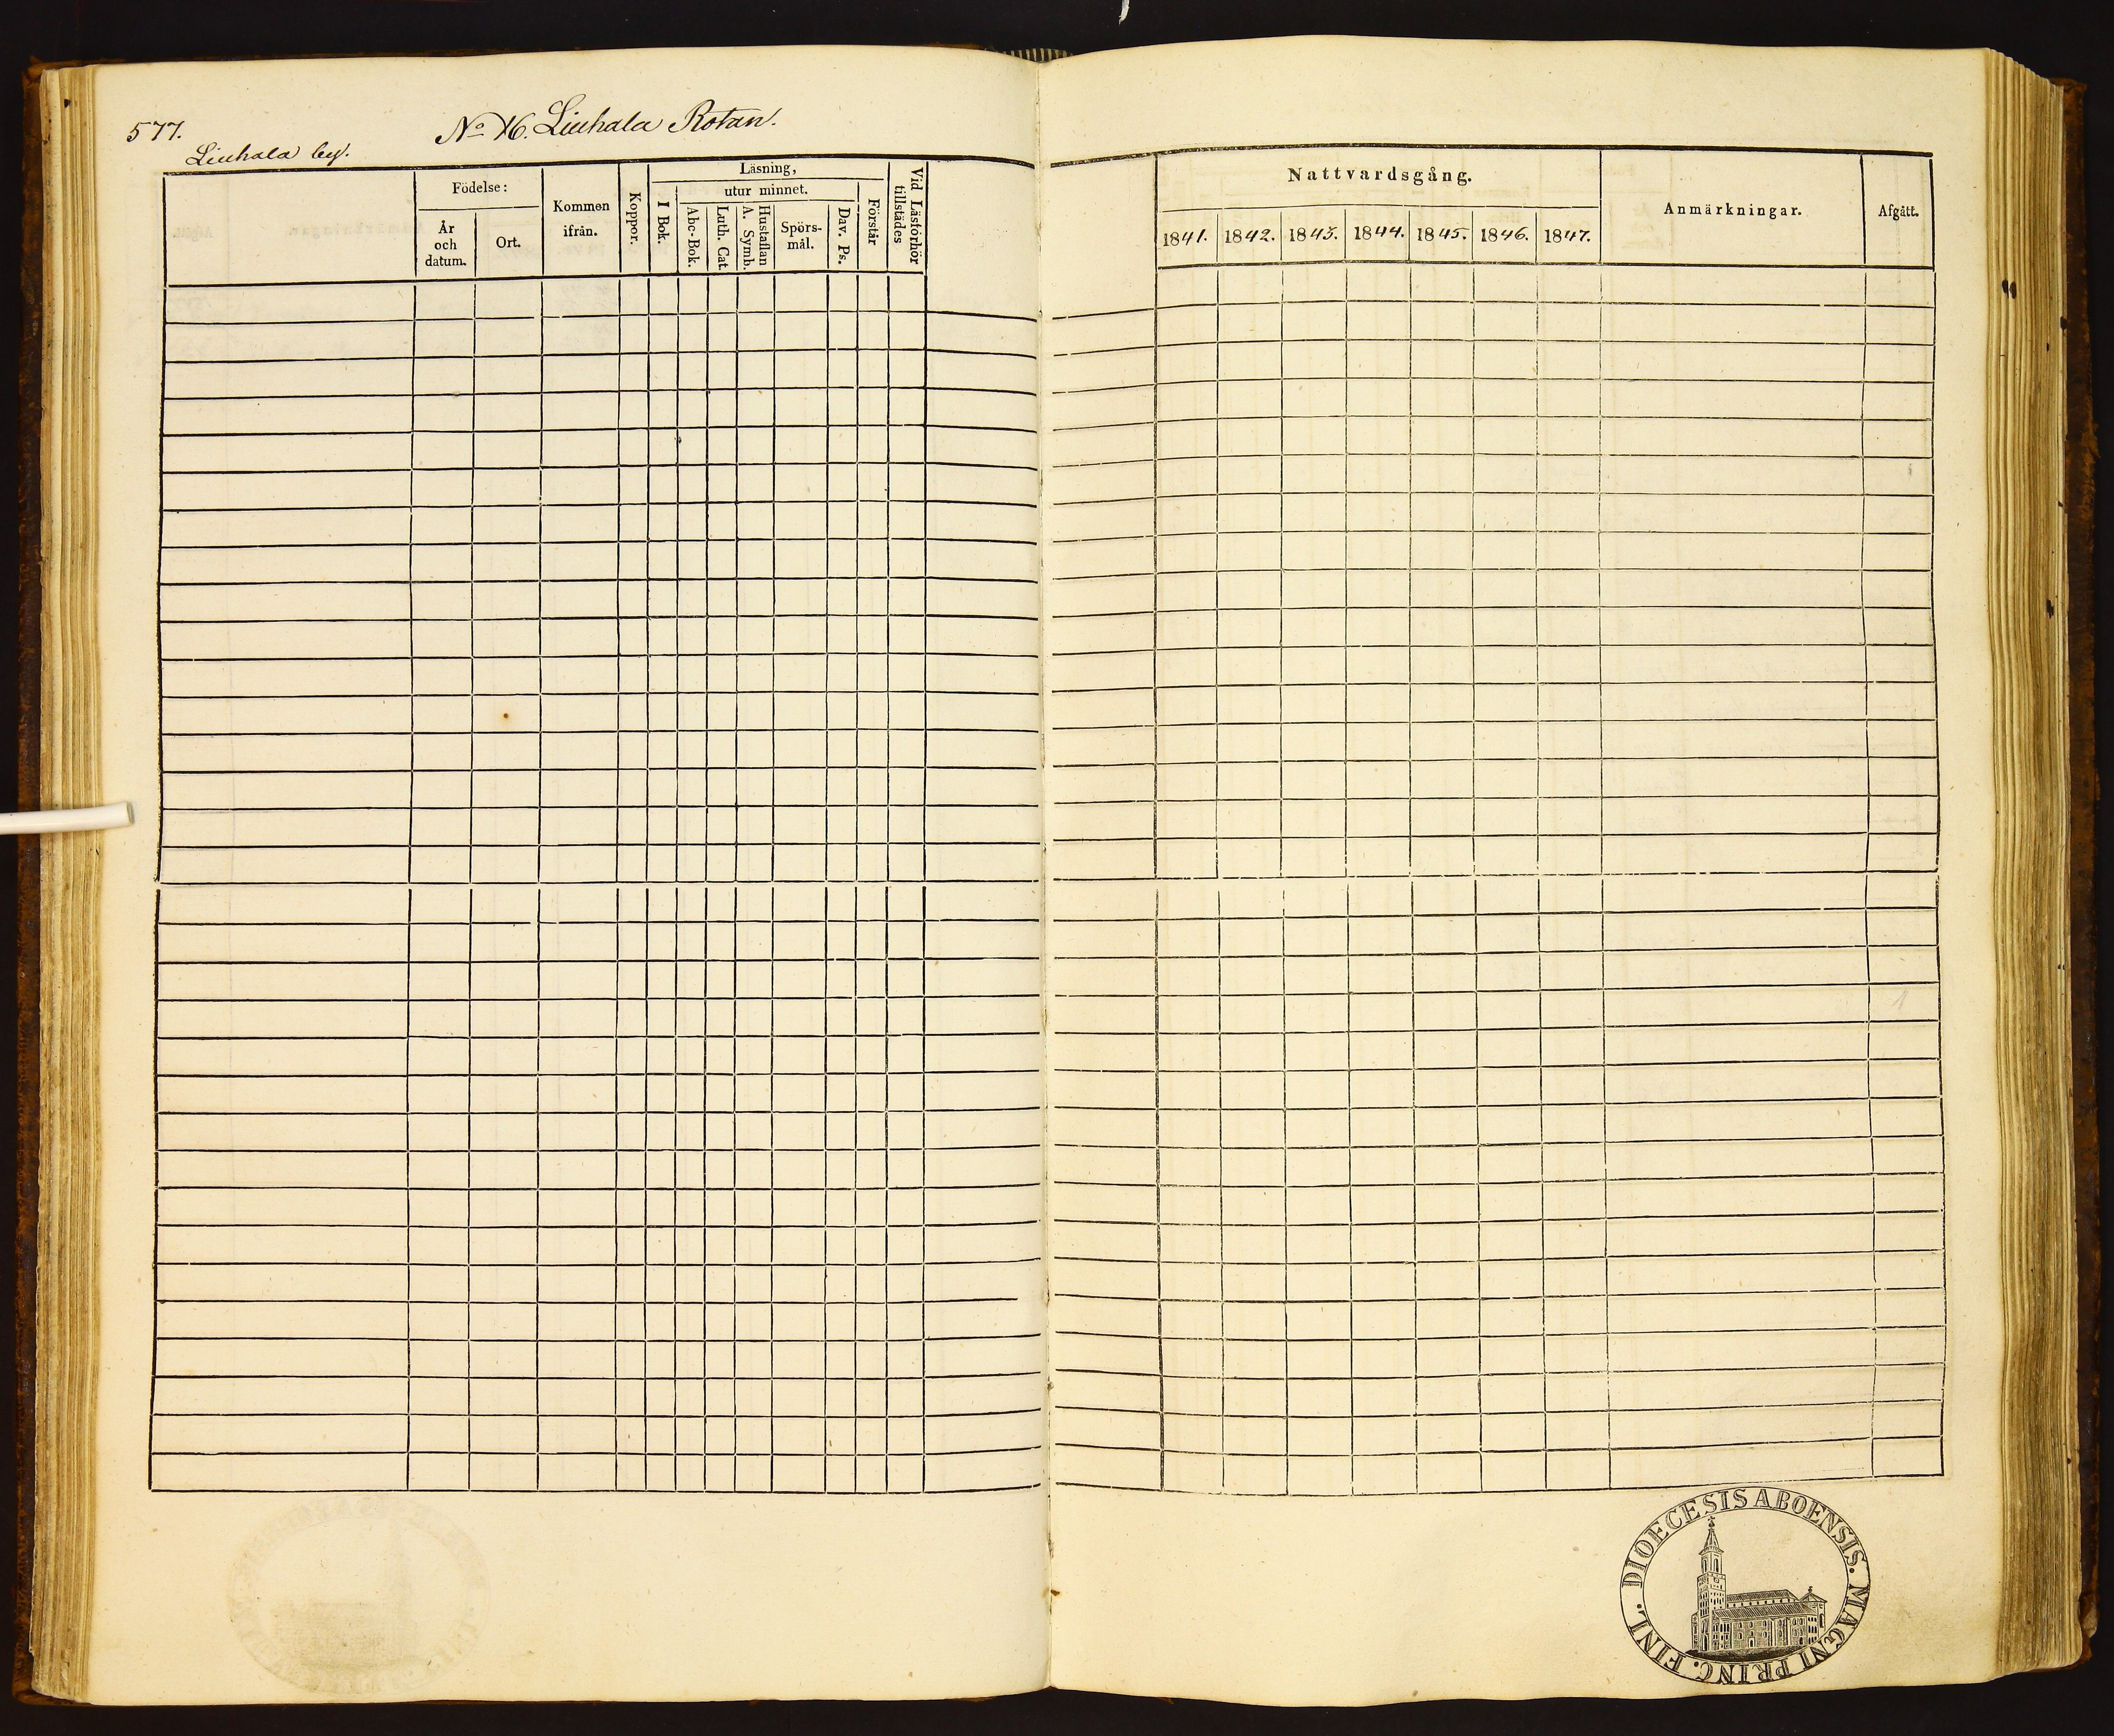 577.
No 16. Liuhala Rotan.
Liuhala by.
Födelse:
År och datum.
Ort.
Kommen ifrån.
Koppor.
Läsning,
I Bok.
utur minnet.
Abc-Bok.
Luth. Cat.
Hustaflan A. Symb.
Spörs-mål.
Dav. Ps.
Förstår
Vid Läsförhör tillstädes
Nattvardsgång.
1841. 1842. 1843. 1844. 1845. 1846. 1847.
Anmärkningar.
Afgått.
DIOECESIS ABOENSIS. MAGNI PRINC. FINL.